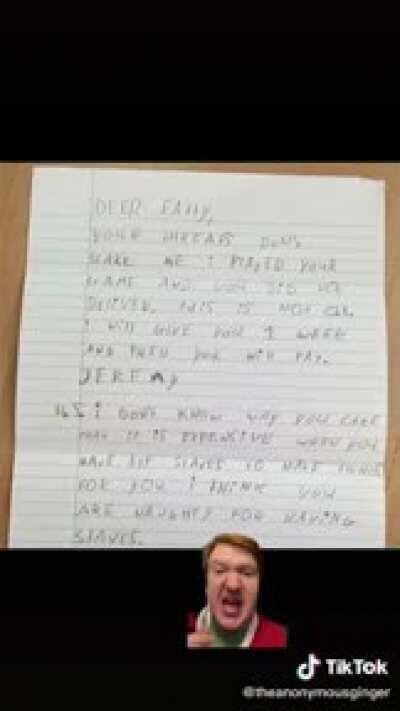 DEER FATTY,
YOUR THREATS DON'T
SCARE ME I PLAYED YOUR
GAME AND YOU DID NOT
DELIVER. THIS IS NOT OK.
I WILL GIVE YOU 1 WEEK
AND THEN YOU WILL PAY.
JEREMY
P.S I DONT KNOW WHY YOU CARE
THAT IT IS EXPENSIVE WHEN YOU
HAVE ELF SLAVES TO MAKE THINGS
FOR YOU I THINK YOU
ARE NAUGHTY FOR HAVING
SLAVES.
TikTok
@theanonymousginger